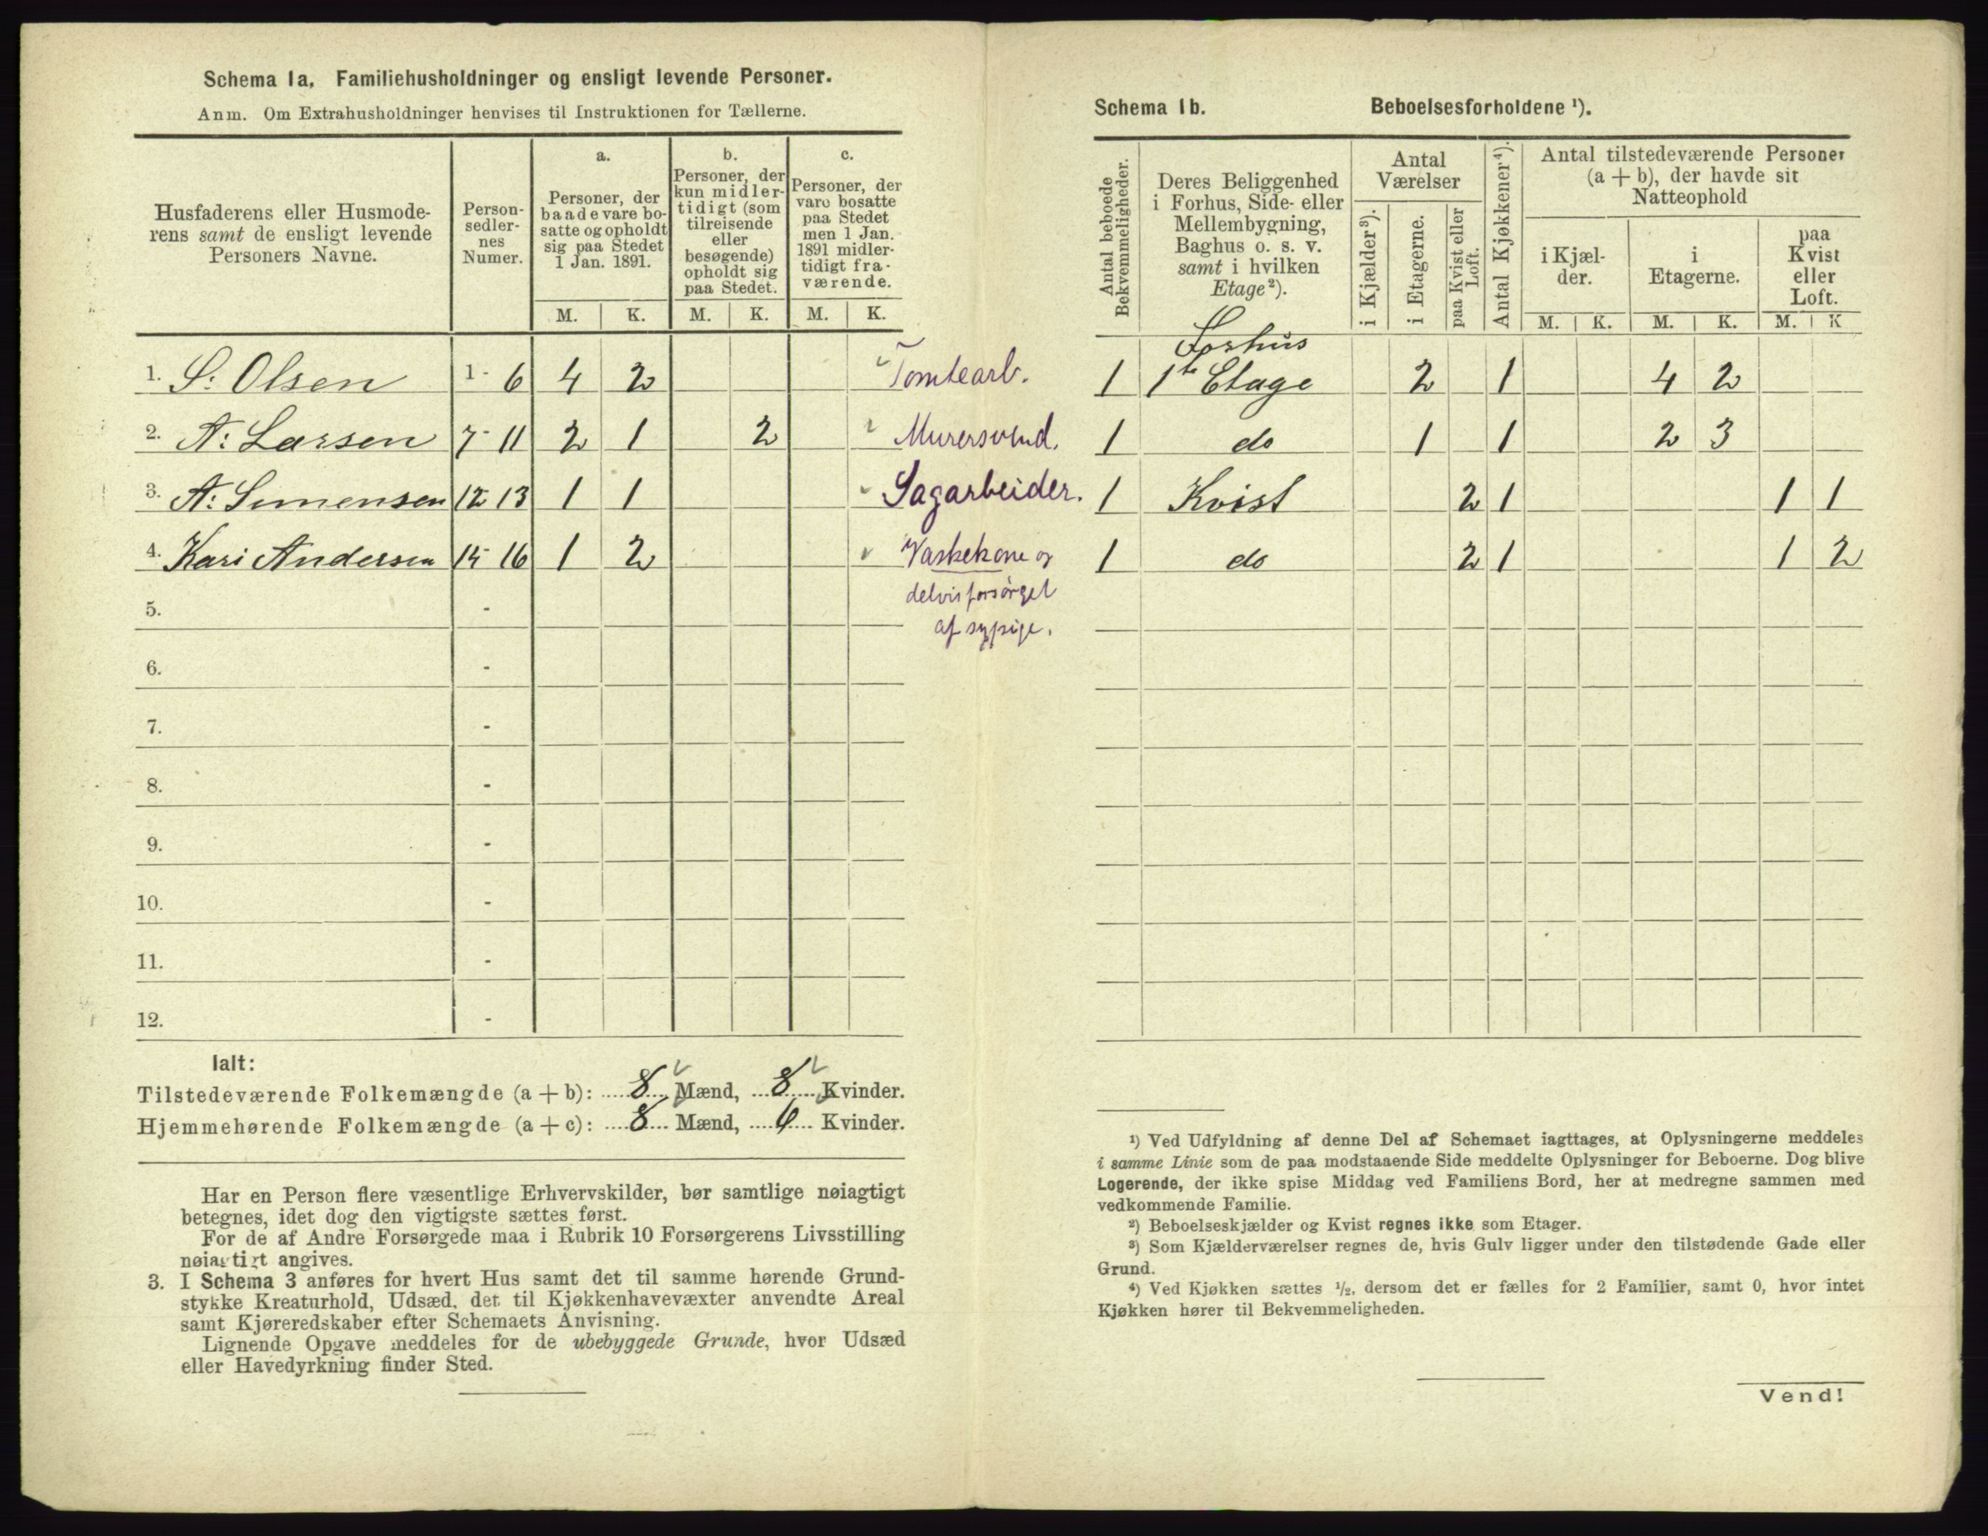 Schema 1a. Familiehusholdninger og ensligt levende Personer.
Anm. Om Extrahusholdninger henvises til Instruktionen for Tællerne.
Husfaderens eller Husmode-
rens samt de ensligt levende
Personers Navne.
Person-
sedler-
nes
Numer.
a.
Personer, der
baade vare bo-
satte og opholdt
sig paa Stedet
1 Jan. 1891.
b.
Personer, der
kun midler-
tidigt (som
tilreisende
eller
besøgende)
opholdt sig
paa Stedet.
c.
Personer, der
vare bosatte
paa Stedet
men 1 Jan.
1891 midler-
tidigt fra-
værende.
M. K. M. K. M. K.
1. S. Olsen 1 - 6 4 2 Tomtearb.
2. A. Larsen 7 - 11 2 1 2 Murersvend.
3. A. Simensen 12 - 13 1 1 Sagarbeider.
4. Kari Andersen 14 - 16 1 2 Vaskekone og
delvis forsørget
af sypige.
5. -
6. -
7. -
8. -
9. -
10. -
11. -
12. -
Ialt:
Tilstedeværende Folkemængde (a + b): 8 Mænd, 8 Kvinder.
Hjemmehørende Folkemængde (a + c): 8 Mænd, 6 Kvinder.
Har en Person flere væsentlige Erhvervskilder, bør samtlige nøiagtigt
betegnes, idet dog den vigtigste sættes først.
For de af Andre Forsørgede maa i Rubrik 10 Forsørgerens Livsstilling
nøiagtigt angives.
3. I Schema 3 anføres for hvert Hus samt det til samme hørende Grund-
stykke Kreaturhold, Udsæd, det til Kjøkkenhavevæxter anvendte Areal
samt Kjøreredskaber efter Schemaets Anvisning.
Lignende Opgave meddeles for de ubebyggede Grunde, hvor Udsæd
eller Havedyrkning finder Sted.
Schema 1b. Beboelsesforholdene ¹).
Antal beboede
Bekvemmeligheder.
Deres Beliggenhed
i Forhus, Side- eller
Mellembygning,
Baghus o. s. v.
samt i hvilken
Etage²).
Antal
Værelser
i Kjælder³).
i Etagerne.
paa Kvist eller
Loft.
Antal Kjøkkener⁴).
Antal tilstedeværende Personer
(a + b), der havde sit
Natteophold
i Kjæl-
der.
i
Etagerne.
paa
Kvist
eller
Loft.
M. K. M. K. M. K
Forhus
1 1ste Etage 2 1 4 2
1 do 1 1 2 3
1 Kvist 2 1 1 1
1 do 2 1 1 2
¹) Ved Udfyldning af denne Del af Schemaet iagttages, at Oplysningerne meddeles
i samme Linie som de paa modstaaende Side meddelte Oplysninger for Beboerne. Dog blive
Logerende, der ikke spise Middag ved Familiens Bord, her at medregne sammen med
vedkommende Familie.
²) Beboelseskjælder og Kvist regnes ikke som Etager.
³) Som Kjælderværelser regnes de, hvis Gulv ligger under den tilstødende Gade eller
Grund.
⁴) Ved Kjøkken sættes ½, dersom det er fælles for 2 Familier, samt 0, hvor intet
Kjøkken hører til Bekvemmeligheden.
Vend!